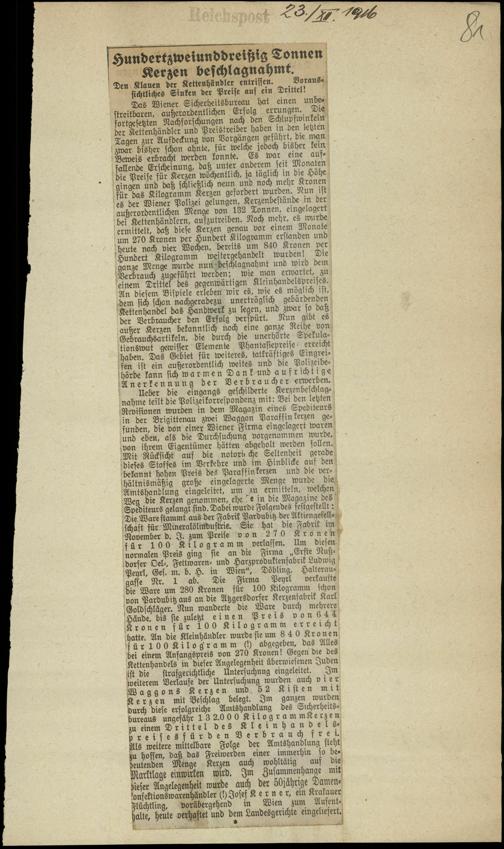 Reichspost
23./XII. 1916
81
Hundertzweiunddreißig Tonnen
Kerzen beschlagnahmt.
Den Klauen der Kettenhändler entrissen. Voraus-
sichtliches Sinken der Preise auf ein Drittel!
Das Wiener Sicherheitsbureau hat einen unbe-
streitbaren, außerordentlichen Erfolg errungen. Die
fortgesetzten Nachforschungen nach den Schlupfwinkeln
der Kettenhändler und Preistreiber haben in den letzten
Tagen zur Aufdeckung von Vorgängen geführt, die man
zwar bisher schon ahnte, für welche jedoch bisher kein
Beweis erbracht werden konnte. Es war eine auf-
fallende Erscheinung, daß unter anderem seit Monaten
die Preise für Kerzen wöchentlich, ja täglich in die Höhe
gingen und daß schließlich neun und noch mehr Kronen
für das Kilogramm Kerzen gefordert wurden. Nun ist
es der Wiener Polizei gelungen, Kerzenbestände in der
außerordentlichen Menge von 132 Tonnen, eingelagert
bei Kettenhändlern, aufzutreiben. Noch mehr, es wurde
ermittelt, daß diese Kerzen genau vor einem Monate
um 270 Kronen per Hundert Kilogramm erstanden und
heute nach vier Wochen, bereits um 840 Kronen per
Hundert Kilogramm weitergehandelt wurden! Die
ganze Menge wurde nun beschlagnahmt und wird dem
Verbrauch zugeführt werden; wie man erwartet, zu
einem Drittel des gegenwärtigen Kleinhandelspreises.
An diesem Bispiele erleben wir es, wie es möglich ist,
dem sich schon nachgeradezu unerträglich gebärdenden
Kettenhandel das Handwerk zu legen, und zwar so daß
der Verbraucher den Erfolg verspürt. Nun gibt es
außer Kerzen bekanntlich noch eine ganze Reihe von
Gebrauchsartikeln, die durch die unerhörte Spekula-
tionswut gewisser Elemente Phantasiepreise erreicht
haben. Das Gebiet für weiteres, tatkräftiges Eingrei-
fen ist ein außerordentlich weites und die Polizeibe-
hörde kann sich warmen Dank und aufrichtige
Anerkennung der Verbraucher erwerben.
Ueber die eingangs geschilderte Kerzenbeschlag-
nahme teilt die Polizeikorrespondenz mit: Bei den letzten
Revisionen wurden in dem Magazin eines Spediteurs
in der Brigittenau zwei Waggon Paraffinkerzen ge-
funden, die von einer Wiener Firma eingelagert waren
und eben, als die Durchsuchung vorgenommen wurde,
von ihrem Eigentümer hätten abgeholt werden sollen.
Mit Rücksicht auf die notorische Seltenheit gerade
dieses Stoffes im Verkehre und im Hinblicke auf den
bekannt hohen Preis des Paraffinkerzen und die ver-
hältnismäßig große eingelagerte Menge wurde die
Amtshandlung eingeleitet, um zu ermitteln, welchen
Weg die Kerzen genommen, ehe sie in die Magazine des
Spediteurs gelangt sind. Dabei wurde Folgendes festgestellt:
Die Ware stammt aus der Fabrik Pardubitz der Aktiengesell-
schaft für Mineralölindustrie. Sie hat die Fabrik im
November d. J. zum Preise von 270 Kronen
für 100 Kilogramm verlassen. Um diesen
normalen Preis ging sie an die Firma „Erste Nuß-
dorfer Oel-, Fettwaren- und Harzproduktenfabrik Ludwig
Peyrl, Ges. m. b. H. in Wien", Döbling, Halterau-
gasse Nr. 1 ab. Die Firma Peyrl verkaufte
die Ware um 280 Kronen für 100 Kilogramm schon
von Pardubitz aus an die Atzgersdorfer Kerzenfabrik Karl
Goldschläger. Nun wanderte die Ware durch mehrere
Hände, bis sie zuletzt einen Preis von 644
Kronen für 100 Kilogramm erreicht
hatte. An die Kleinhändler wurde sie um 840 Kronen
für 100 Kilogramm (!) abgegeben, das Alles
bei einem Anfangspreis von 270 Kronen! Gegen die des
Kettenhandels in dieser Angelegenheit überwiesenen Juden
ist die strafgerichtliche Untersuchung eingeleitet. Im
weiterem Verlaufe der Untersuchung wurden auch vier
Waggons Kerzen und 52 Kisten mit
Kerzen mit Beschlag belegt. Im ganzen wurden
durch diese erfolgreiche Amtshandlung des Sicherheits-
bureaus ungefähr 132.000 Kilogramm Kerzen
zu einem Drittel des Kleinhandels-
preises für den Verbrauch frei.
Als weitere mittelbare Folge der Amtshandlung steht
zu hoffen, daß das Freiwerden einer immerhin so be-
deutenden Menge Kerzen auch wohltätig auf die
Marktlage einwirken wird. Im Zusammenhange mit
dieser Angelegenheit wurde auch der 50jährige Damen-
konfektionswarenhändler (!) Josef Kerner, ein Krakauer
Flüchtling, vorübergehend in Wien zum Aufent-
halte, heute verhaftet und dem Landesgerichte eingeliefert.